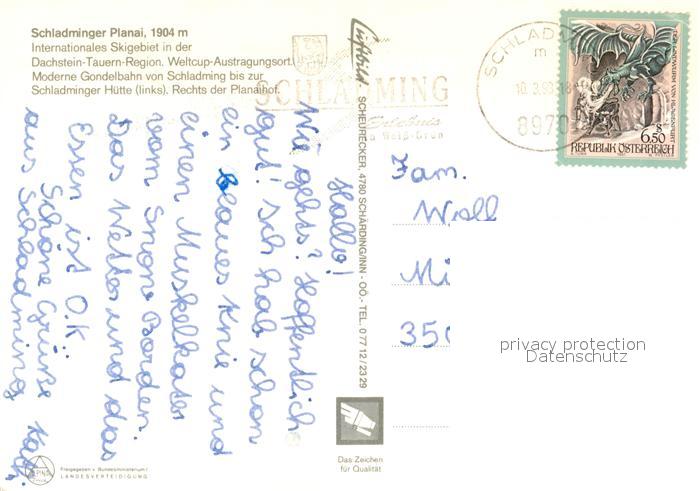 Schladminger Planai, 1904 m
Internationales Skigebiet in der
Dachstein-Tauern-Region. Weltcup-Austragungsort.
Moderne Gondelbahn von Schladming bis zur
Schladminger Hütte (links). Rechts der Planaihof.
SCHLADMING
Erlebnis
in Weiß-Grün
SCHLADMING
m
10.3.93-18
8970
DER LINDWURM VON KLAGENFURT
S
6.50
REPUBLIK ÖSTERREICH
Luftbild
SCHEURECKER, 4780 SCHÄRDING/INN - OÖ.- TEL. 0 77 12 / 23 29
Hallo!
Wie gehts? Hoffentlich
gut! Ich hab schon
ein blaues Knie und
einen Muskelkater
vom Snow Borden.
Das Wetter und das
Essen ist O.K.
Schöne Grüße
aus Schladming
Fam.
Woll
Mi
350
privacy protection
Datenschutz
Das Zeichen
für Qualität
Freigegeben v. Bundesministerium f.
LANDESVERTEIDIGUNG